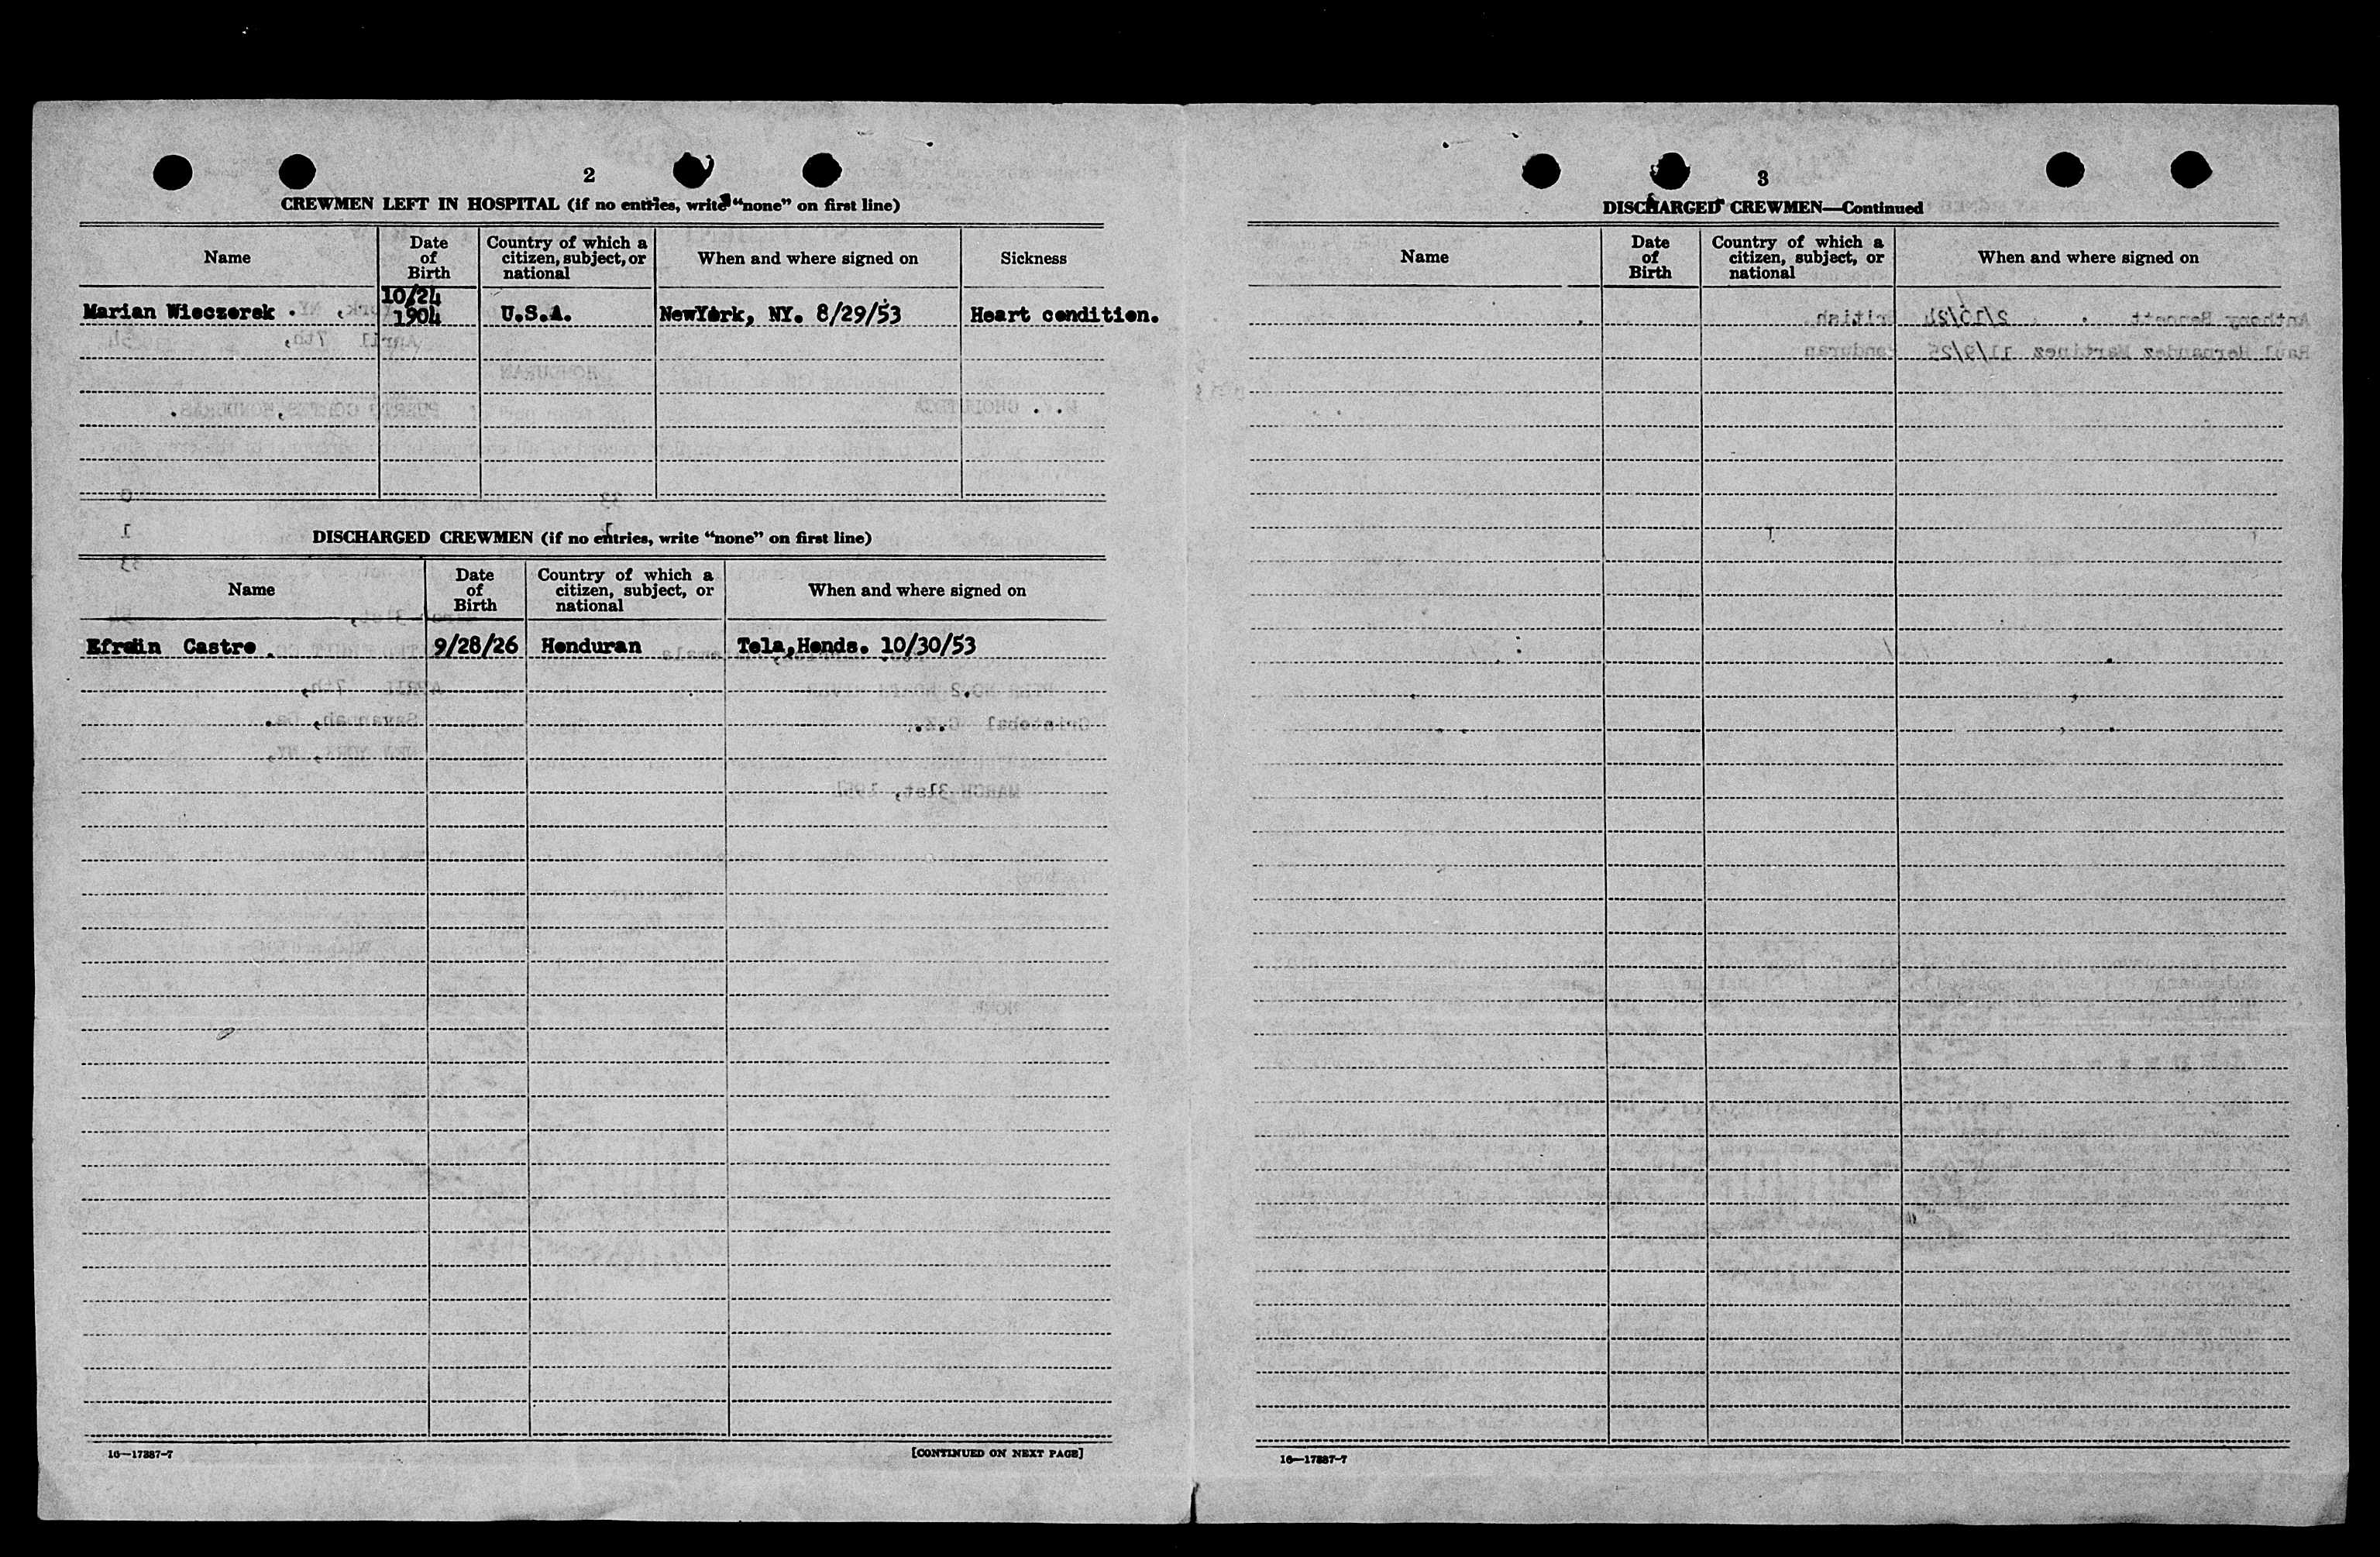 2
CREWMEN LEFT IN HOSPITAL (if no entries, write "none" on first line)
Name
Date of Birth
Country of which a citizen, subject, or national
When and where signed on
Sickness
Marian Wieczorek . 10/24 1904 U.S.A. NewYork, NY. 8/29/53 Heart condition.
DISCHARGED CREWMEN (if no entries, write "none" on first line)
Name
Date of Birth
Country of which a citizen, subject, or national
When and where signed on
Efrain Castro . 9/28/26 Honduran Tela,Honds. 10/30/53
16—17887-7
[CONTINUED ON NEXT PAGE]
3
DISCHARGED CREWMEN—Continued
Name
Date of Birth
Country of which a citizen, subject, or national
When and where signed on
Anthony Bennett . 2/10/24 British
Raul Hernandez Martinez 11/9/25 Honduran
16—17887-7